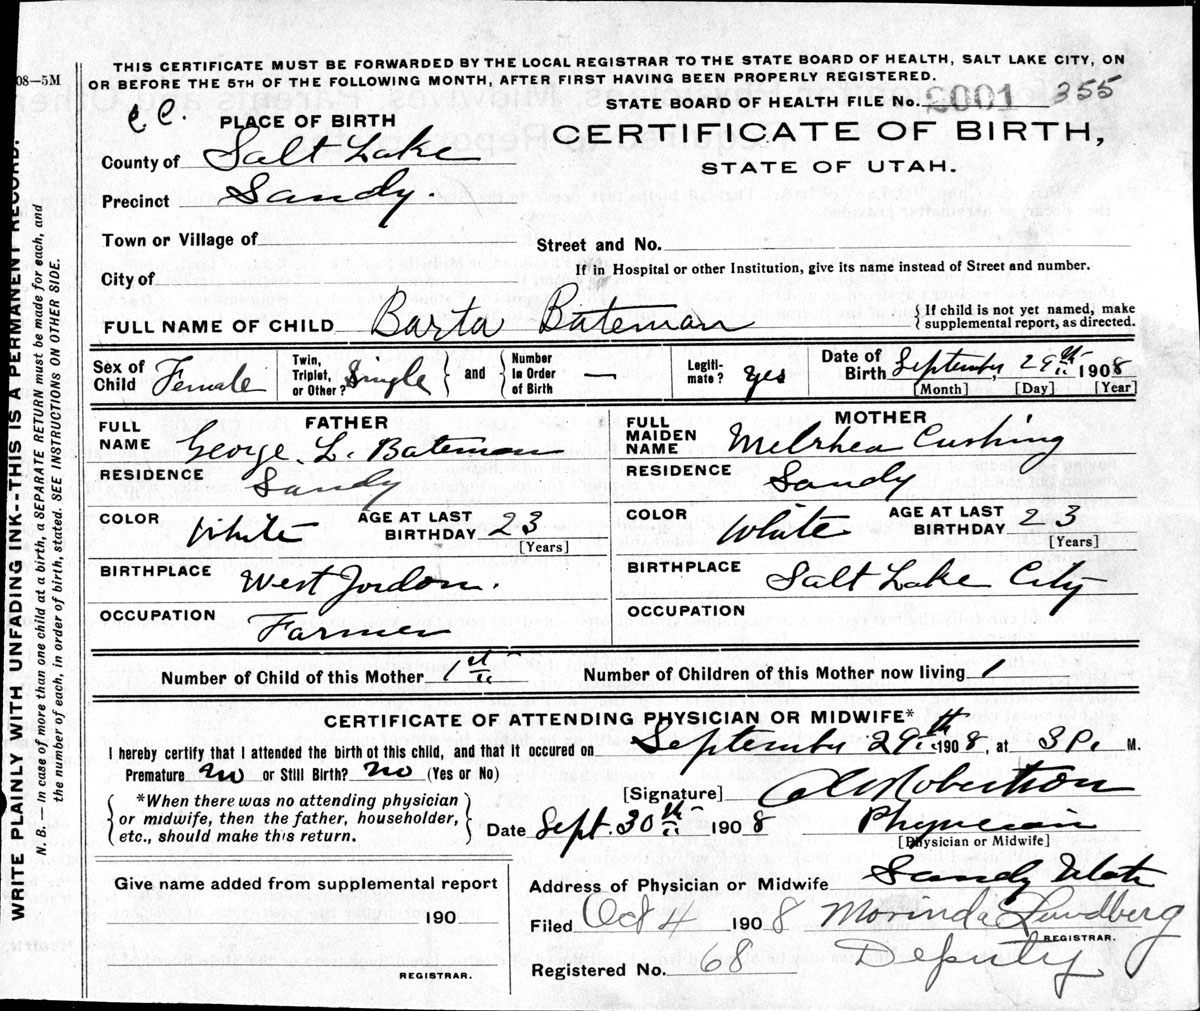 08—5M
THIS CERTIFICATE MUST BE FORWARDED BY THE LOCAL REGISTRAR TO THE STATE BOARD OF HEALTH, SALT LAKE CITY, ON
OR BEFORE THE 5TH OF THE FOLLOWING MONTH, AFTER FIRST HAVING BEEN PROPERLY REGISTERED.
STATE BOARD OF HEALTH FILE No. 355
PLACE OF BIRTH
CERTIFICATE OF BIRTH,
County of Salt Lake
STATE OF UTAH.
Precinct Sandy.
Town or Village of
Street and No.
City of
If in Hospital or other Institution, give its name instead of Street and number.
FULL NAME OF CHILD Barta Bateman
{ If child is not yet named, make
supplemental report, as directed.
Sex of Child Female
Twin, Triplet, or Other? Single } and { Number In Order of Birth —
Legiti-mate? yes
Date of Birth September 29th 1908
[Month] [Day] [Year]
FATHER
FULL NAME George L. Bateman
RESIDENCE Sandy
COLOR White
AGE AT LAST BIRTHDAY 23
[Years]
BIRTHPLACE West Jordan.
OCCUPATION Farmer
MOTHER
FULL MAIDEN NAME Melrhea Cushing
RESIDENCE Sandy
COLOR White
AGE AT LAST BIRTHDAY 23
[Years]
BIRTHPLACE Salt Lake City
OCCUPATION
Number of Child of this Mother 1st
Number of Children of this Mother now living 1
CERTIFICATE OF ATTENDING PHYSICIAN OR MIDWIFE*
I hereby certify that I attended the birth of this child, and that it occured on September 29th 1908, at 3 P. M.
Premature no or Still Birth? no (Yes or No)
{ *When there was no attending physician
or midwife, then the father, householder,
etc., should make this return. }
[Signature] Robertson
Date Sept. 30th 1908
Physician
[Physician or Midwife]
Give name added from supplemental report
190
REGISTRAR.
Address of Physician or Midwife Sandy Utah
Filed Oct 4 1908 Morinda Lundberg
REGISTRAR.
Registered No. 68 Deputy
WRITE PLAINLY WITH UNFADING INK--THIS IS A PERMANENT RECORD.
N. B. In case of more than one child at a birth, a SEPARATE RETURN must be made for each, and
the number of each, in order of birth, stated. SEE INSTRUCTIONS ON OTHER SIDE.